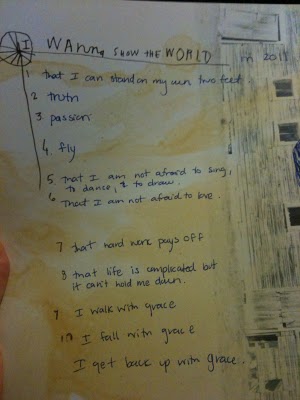 I WANNA SHOW THE WORLD in 2011
1. that I can stand on my own two feet.
2 truth
3. passion
4. fly
5. That I am not afraid to sing,
to dance, & to draw.
6 That I am not afraid to love.
7 that hard work pays OFF
8 that life is complicated but
it can't hold me down.
9 I walk with grace
10 I fall with grace
I get back up with grace.